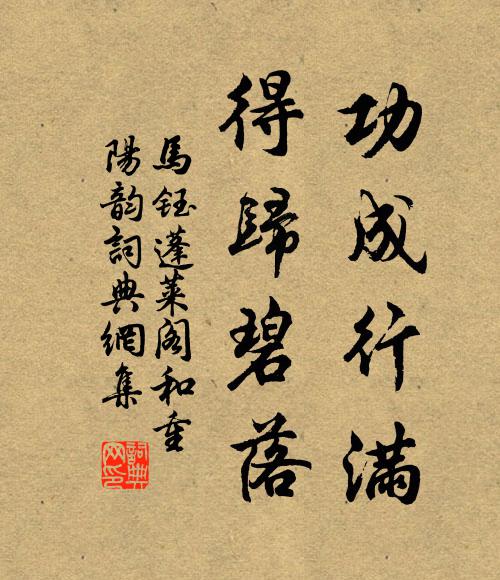 功成行滿
得歸碧落
馬鈺蓬萊閣和重
陽韵詞典網集
詞典网印